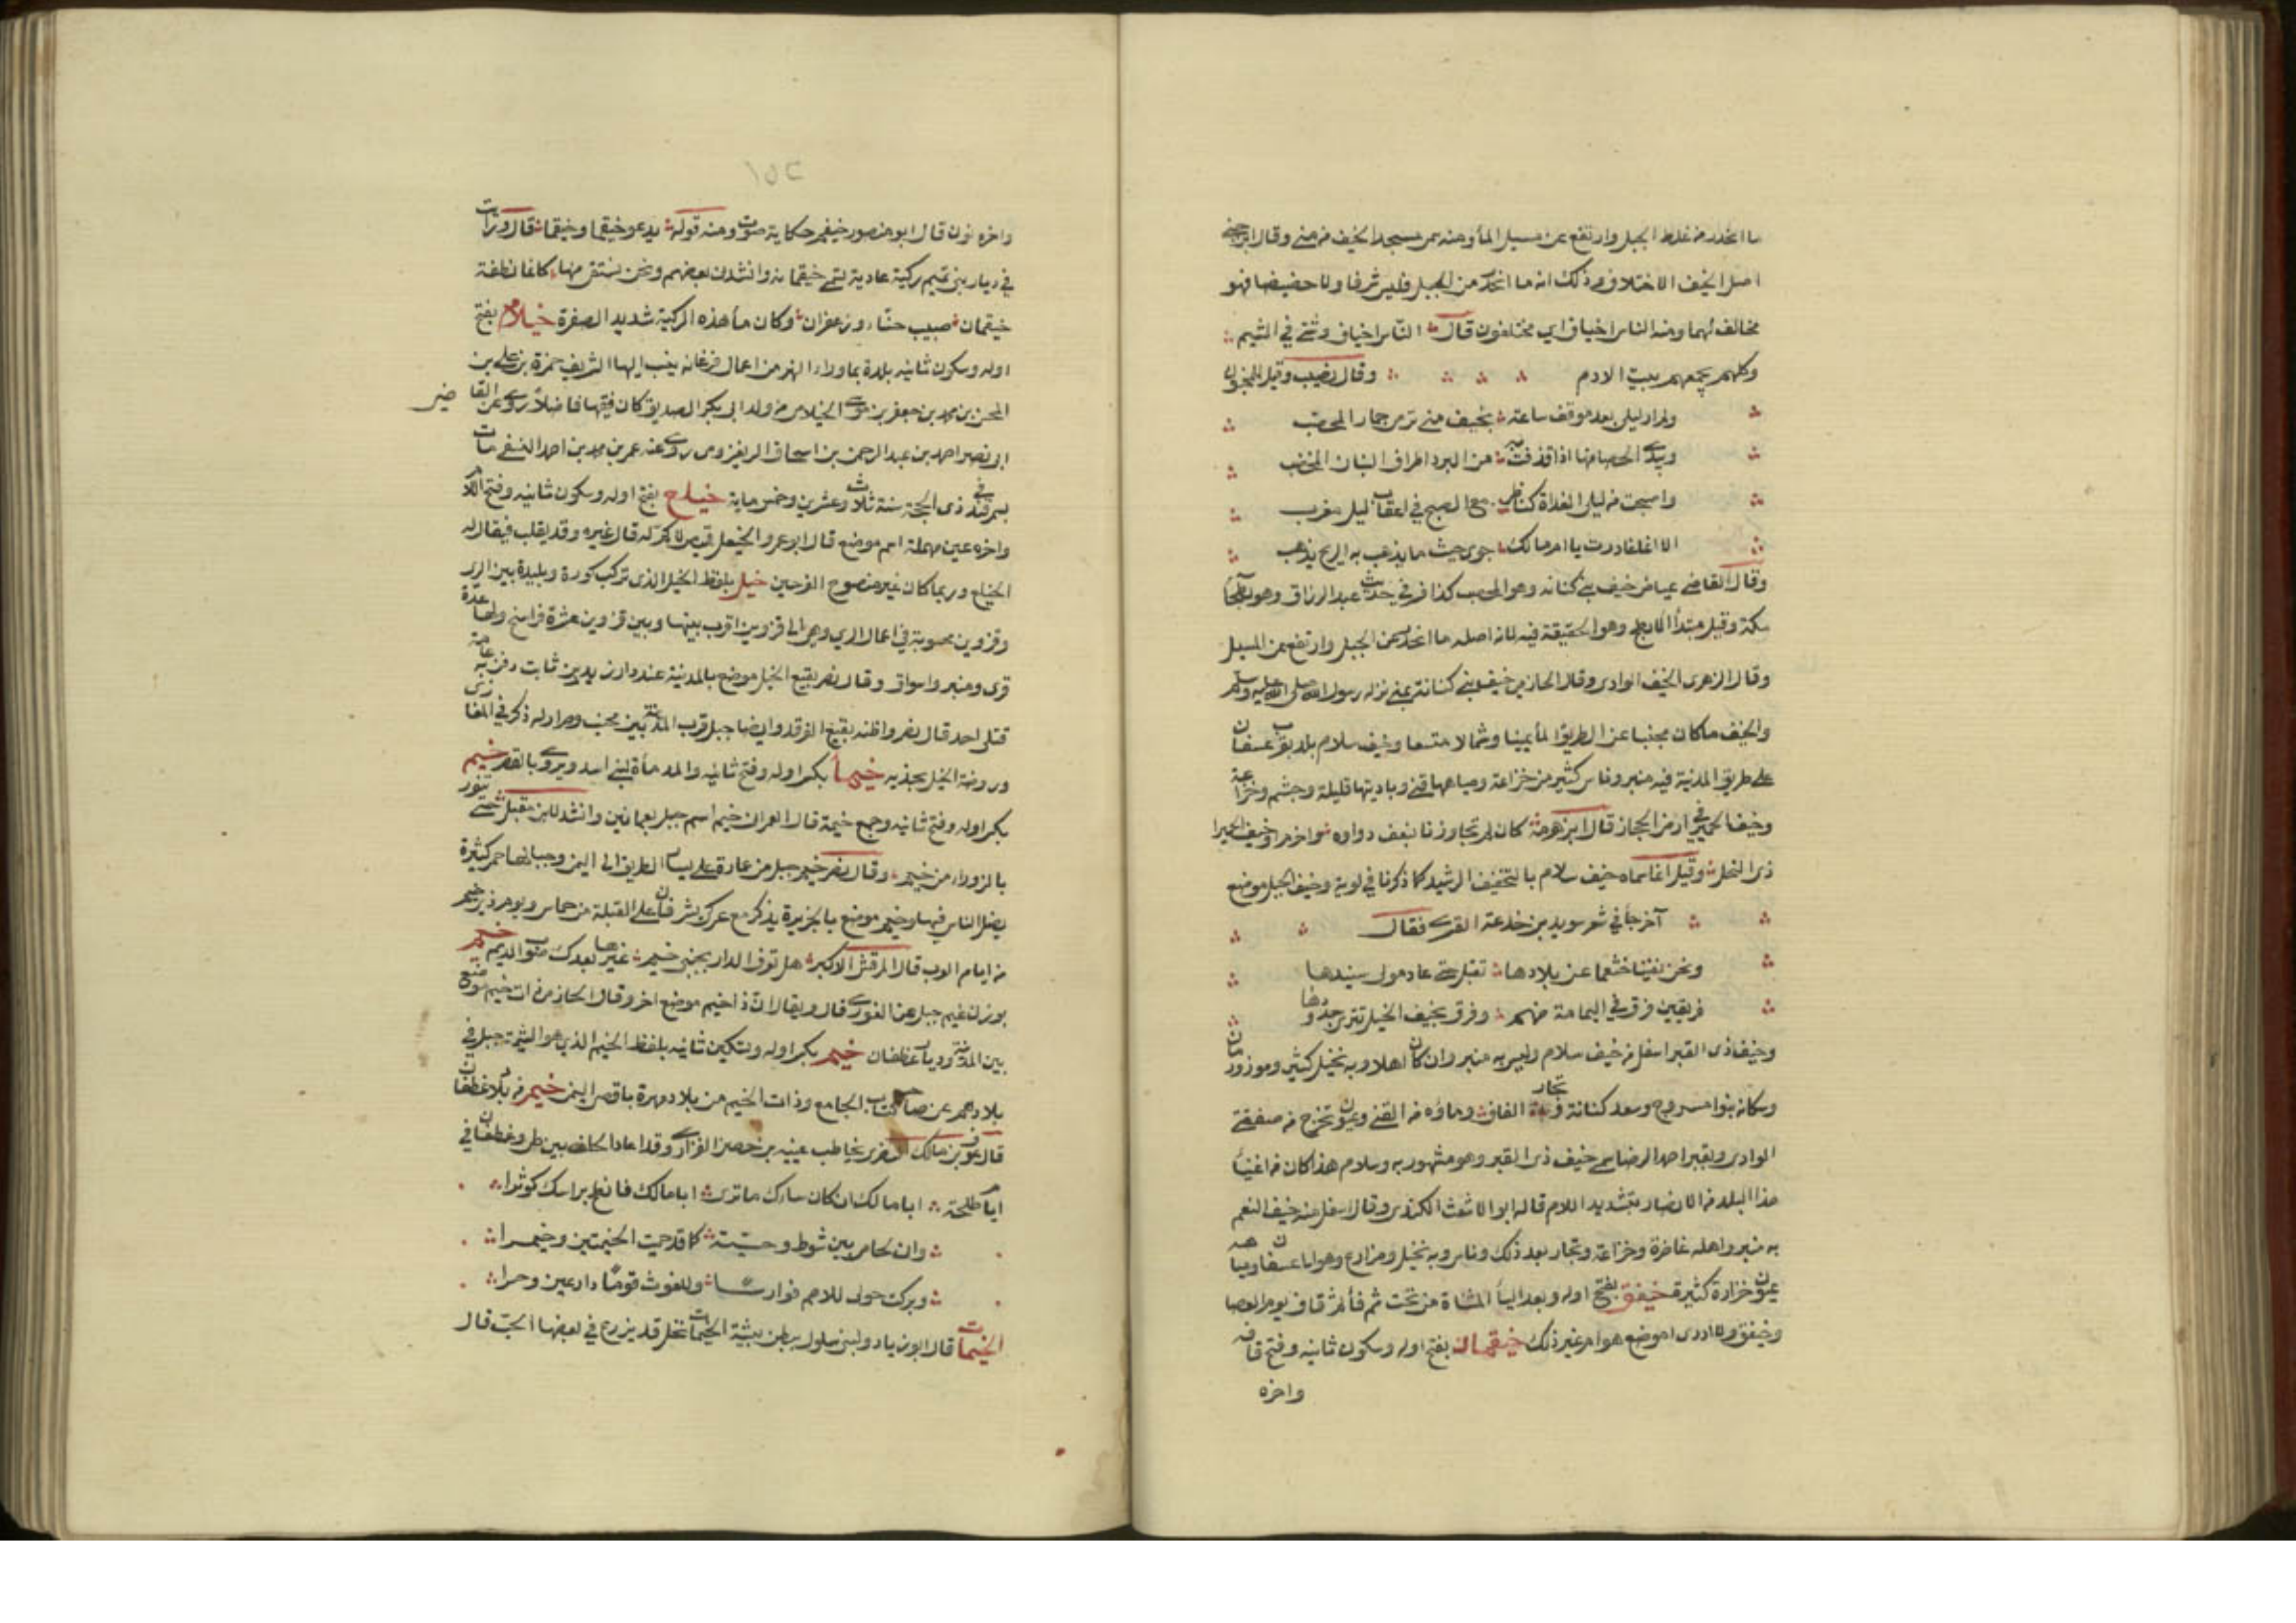 ما انحدر من غلظ الجبل وارتفع عن مسيل الماء ومنه سمي مسجد الخيف من منى وقال ابن جني
اصل الخيف الاختلاف وذلك انه ما انحدر من الجبل فليس شرفا ولا حضيضا فهو
مخالف لهما ومنه الناس اخياف اي مختلفون قال الناس اخياف وشتى في الشيم
وكلهم يجمعهم بيت الادم وقال نصيب وقيل للمجنون
ولم ار ليلى بعد موقف ساعة بخيف منى ترمي جمار المحصب
ويبدي الحصا منها اذا قذفت به من البرد اطراف البنان المخضب
واصبحت من ليلى الغداة كناظر مع الصبح في اعقاب ليل مغرب
الا انما غادرت يا ام مالك جوى حيث ما يذهب به الريح يذهب
وقال القاضي عياض خيف بني كنانة وهو المحصب كذا فسر في حديث عبد الرزاق وهو بطحا
مكة وقيل مبتدأ الابطح وهو الحقيقة فيه لان اصله ما انحدر من الجبل وارتفع عن المسيل
وقال الزهري الخيف الوادي وقال الحازمي خيف بني كنانة بمنى نزله رسول الله صلى الله عليه وسلم
والخيف ما كان مجنبا عن الطريق الماء يمينا وشمالا متسعا وخيف سلام بلد بقرب عسفان
على طريق المدينة فيه منبر وناس كثير من خزاعة ومياهها قنى وباديتها قليلة وجشم وخزاعة
وخيف الحميرا في ارض الحجاز قال ابن هرمة كان لم تجاورنا بنعف دواوه واخزم او خيف الحميرا
ذي النخل وقيل انما سماه خيف سلام بالتخفيف الرشيد كما ذكرنا في لوية وخيف الجبل موضع
آخر جاء في شعر سويد بن خدعة القرى فقال
ونحن نفينا خثعما عن بلادها تقتل حتى عاد مولى سنيدها
فريقين فرق في اليمامة منهم وفرق بخيف الخيل تترى جدودها
وخيف ذي القبر اسفل من خيف سلام وليس به منبر وان كان اهلا وبه نخيل كثير وموز ورمان
وسكانه بنوا مسروح وسعد كنانة وتجار الفاف وماؤه من القنى وعيون تخرج من ضفتي
الوادي وبقبر احمد الرضا سمي خيف ذي القبر وهو مشهور به وسلام هذا كان من اغنياء
هذا البلد من الانصار بتشديد اللام قاله ابو الاشعث الكندي وقال اسفل منه خيف النعم
به منبر واهله غاضرة وخزاعة وتجار بعد ذلك وناس وبه نخيل ومزارع وهو الى عسفان ومياهه
عيون خرارة كثيرة خيفق بفتح اوله وبعد الياء المثناة من تحت ثم فاء لم ثم قاف يوم العصا
وخيفق ولا ادري اموضع هو ام غير ذلك خيقمان بفتح اوله وسكون ثانيه وفتح قافه
واخره
١٥٢
واخره نون قال ابو منصور خيقم حكاية صوت ومنه قوله يدعو خيقما وخيقما قال ورأيت
في ديار بني تميم ركية عادية تسمى خيقمان وانشدني بعضهم ونحن نستقي منها كانما نطفة
خيقمان صبيب حناء وزعفران وكان ماء هذه الركية شديد الصفرة خيلام بفتح
اوله وسكون ثانيه بلدة بما وراء النهر من اعمال فرغانة ينسب اليها الشريف حمزة بن علي بن
المحسن بن محمد بن جعفر بن موسى الخيلامي من ولد ابي بكر الصديق كان فقيها فاضلا روى عن القا
ضي
ابو نصر احمد بن عبد الرحمن بن اسحاق الريغذموني روى عنه عمر بن محمد بن احمد النسفي مات
بسمرقند في ذي الحجة سنة ثلاث وعشرين وخمس ماية خيلع بفتح اوله وسكون ثانيه وفتح اللام
واخره عين مهملة اسم موضع قال ابو عمرو الخيعل قميص لا كم له قال غيره وقد يقلب فيقال له
الخيلع وربما كان غير منصوح الفرجين خيل بلفظ الخيل الذي تركب كورة وبليدة بين الري
وقزوين محسوبة في اعمال الري وهي الى قزوين اقرب بينها وبين قزوين عشرة فراسخ ولها عدة
قرى ومنبر واسواق وقال نصر بقيع الخيل موضع بالمدينة عند دار زيد بن ثابت دفن به عامة
قتلى احد قال نصر واظنه بقيع الغرقد وايضا جبل قرب المدينة بين مجنب وصرار له ذكر في المغازي
وروضة الخيل بجذيه خيماء بكسر اوله وفتح ثانيه والمد ماءة لبني اسد ويروى بالقصر خيم
بكسر اوله وفتح ثانيه وجمع خيمة قال العمراني خيم اسم جبل بعمايتين وانشد لابن مقبل حتى تنور
بالزوراء من خيم وقال نصر خيم جبل من عماية على يسار الطريق الى اليمن وجبالها حمر كثيرة
يضل الناس فيها وخيم موضع بالجزيرة يذكر مع عرعر يشرفان على القبلة من حماس ويوم ذي خيم
من ايام العرب قال المرقش الاكبر هل تعرف الدار بجنبي خيم غيرها بعدك صوب الديم خيم
بوزن غيم جبل عن الغوري قال ويقال ان ذا خيم موضع اخر وقال الحازمي ذات خيم موضع
بين المدينة وديار غطفان خيم بكسر اوله وتسكين ثانيه بلفظ الخيم الذي هو الشيمة جبل في
بلادهم عن صاحب كتاب الجامع وذات الخيم من بلاد مهرة باقصى اليمن خيمر من بلاد غطفان
قال عوف بن مالك يخاطب عيينة بن حصن الفزاري وقد اعاد الحلف بين طي وغطفان في
ايام طلحة ابا مالك ان كان ساءك ما ترى ابا مالك فانطح براسك كوثرا
وان لحامي بين شوط وحيَّة كما قد حميت الخيمتين وخيمرا
وبركت حولي للاصم فوارسا وللغوث قوما دارعين وحسرا
الخيمات قال ابو زياد ولبني سلول ببطن بيشة الخيمات نخل قد يزرع في بعضها الحب قال